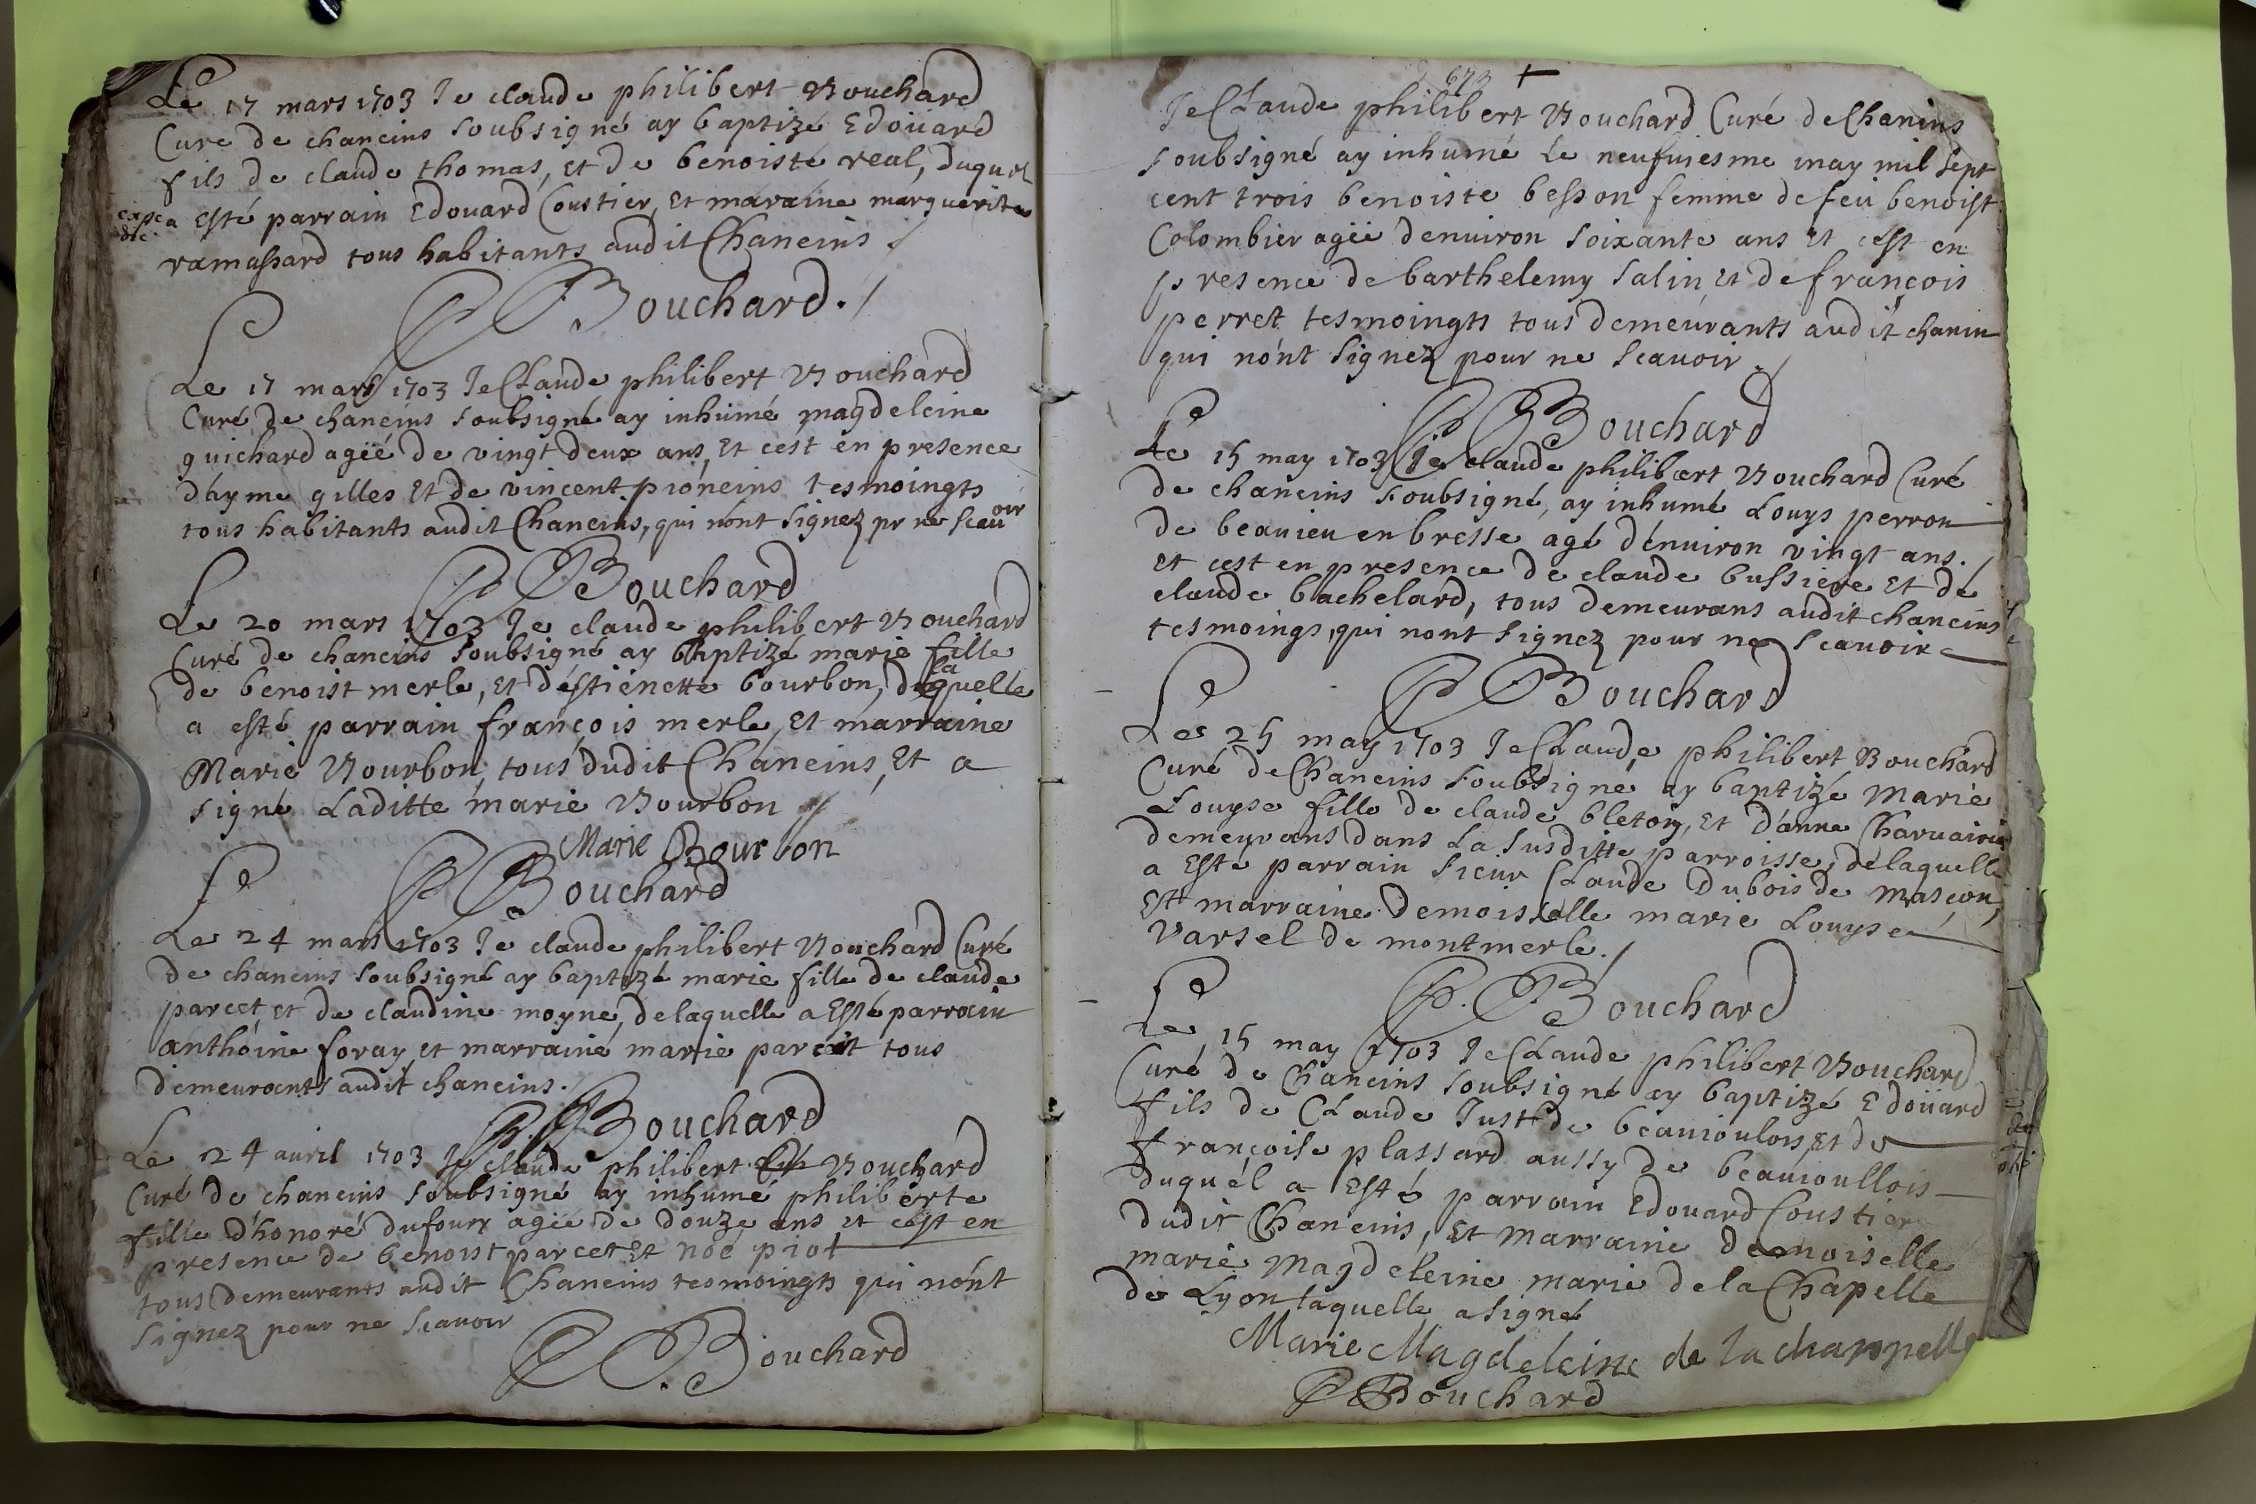 Le 17 mars 1703 Je claude philibert Bouchard
Curé de chaneins soubsigné ay baptizé Edoüard
fils de claude thomas, et de benoiste real, duquel
expe a Esté parrain Edouard Coustier, Et maraine marguerite
die
ramassard tous habitants audit Chaneins
Bouchard
Le 17 mars 1703 Je Claude philibert Bouchard
Curé de chaneins soubsigné ay inhumé magdeleine
guichard agée de vingt deux ans, Et cest en presence
dhyme gilles Et de vincent pioneins tesmoingts
tous habitants audit Chaneins, qui nont signez pr ne scauoir
Bouchard
Le 20 mars 1703 Je claude philibert Bouchard
Curé de chaneins soubsigné ay baptizé marie fille
de benoist merle, Et d'estienette bourbon, de laquelle
a esté parrain françois merle, Et marraine
Marie Bourbon, tous dudit Chaneins, Et a
signé Laditte marie Bourbon
Marie Bourbon
Bouchard
Le 24 mars 1703 Je claude philibert Bouchard Curé
de chaneins soubsigné ay baptizé marie fille de claude
parcet, et de claudine moyne, delaquelle a Esté parrain
anthoine foray et marraine marie parcet tous
demeurants audit chaneins.
Bouchard
Le 24 auril 1703 Je claude philibert Bouchard
Curé de chaneins soubsigné ay inhumé philiberte
fille d'honoré dufour agée de douze ans et cest en
presence de benoist parcet Et noé piot
tous demeurants audit Chaneins tesmoingts qui n'ont
signez pour ne scauoir
Bouchard
673 +
Je Claude philibert Bouchard Curé de Chanins
soubsigné ay inhumé Le neufuiesme may mil sept
cent trois benoiste besson femme de feu benoist
Colombier agée denuiron soixante ans Et cest en
presence de barthelemy salin, Et de françois
perret tesmoingts tous demeurants audit chanin
qui n'ont signez pour ne scauoir
Bouchard
Le 15 may 1703 Je claude philibert Bouchard Curé
de chaneins soubsigné, ay inhumé Louys perron
de beauieu en bresse agé denuiron vingt ans.
Et cest en presence de claude bussiere Et de
claude bachelard, tous demeurans audit chaneins
tesmoings, qui nont signez pour ne scauoir
Bouchard
Le 25 may 1703 Je Claude philibert Bouchard
Curé de Chaneins soubsigné ay baptizé Marie
Louyse fille de claude bleton, Et d'anne
demeurans dans La susditte parroisse, delaquelle
a Esté parrain sieur Claude Dubois de mascon,
Et marraine demoiselle marie Louyse
Varsel de montmerle.
Bouchard
Le 15 may 1703 Je Claude philibert Bouchard
Curé de Chaneins soubsigné ay baptizé Edoüard
fils de Claude Just de beauioulois, Et de
françoise plassard aussy de beauioullois
duquel a Esté parrain Edouard Coustier
dudit Chaneins, Et Marraine demoiselle
marie magdeleine marie de la Chapelle
de Lyon laquelle a signé
Marie Magdeleine de la chappelle
Bouchard